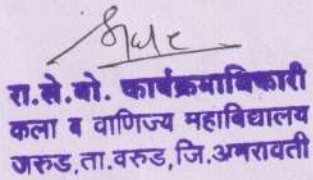 रा.से.यो. कार्यक्रमाधिकारी
कला व वाणिज्य महाविद्यालय
जरुड,ता.वरुड,जि.अमरावती